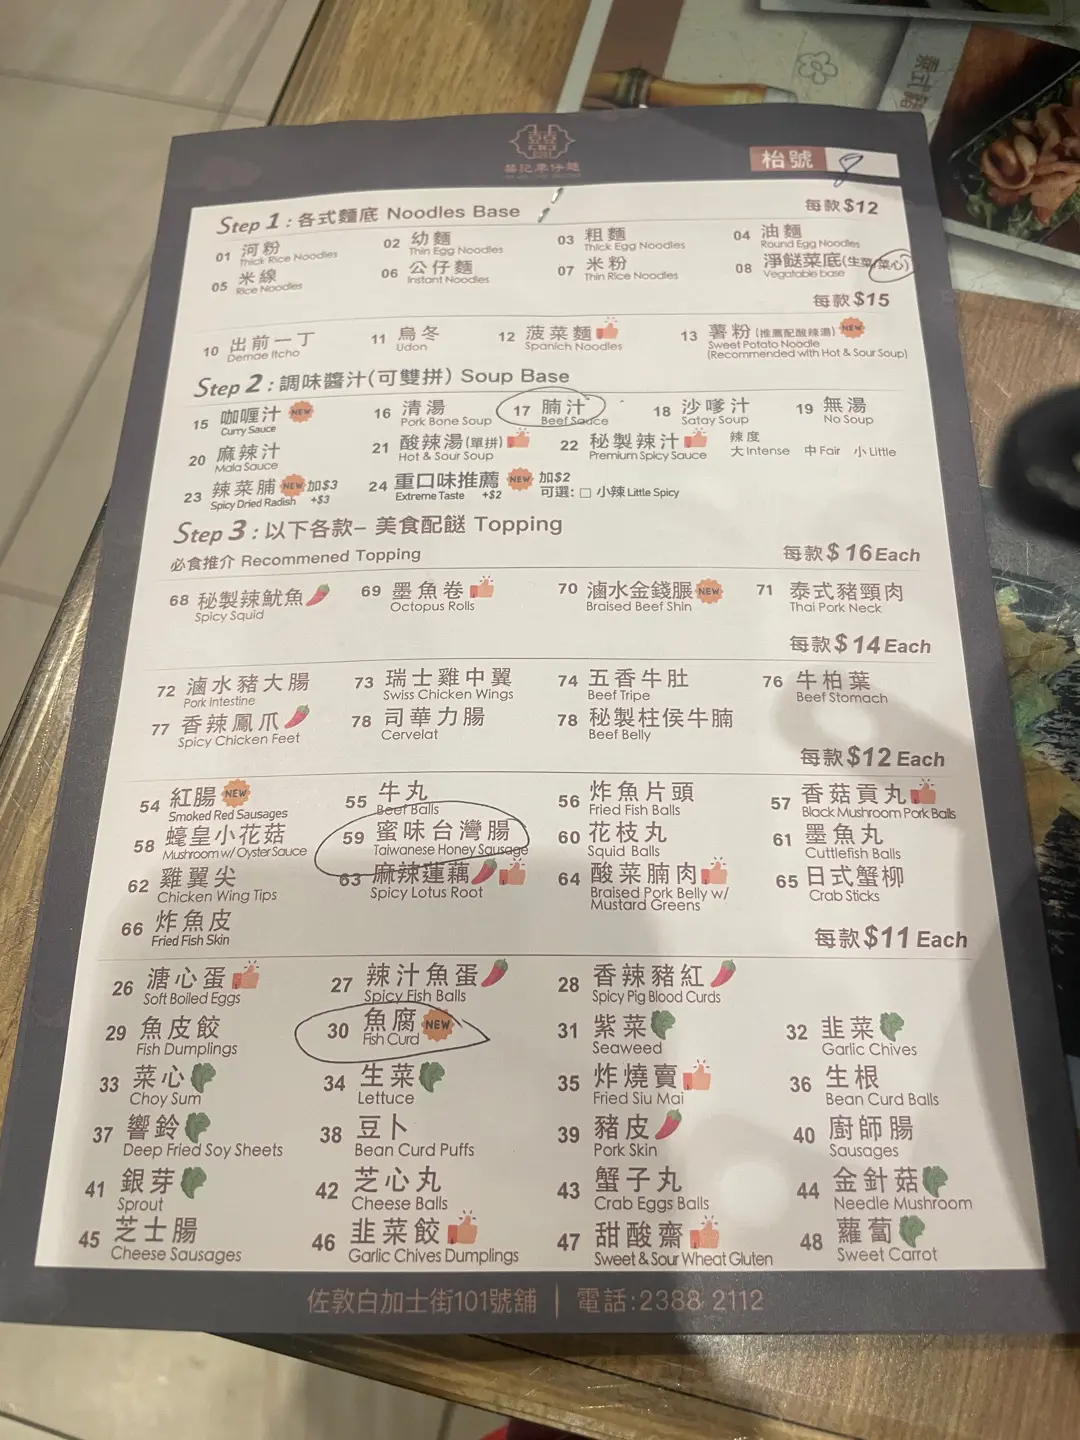 囍
囍記車仔麵
枱號 8
泰式豬
Step 1 : 各式麵底 Noodles Base 每款$12
01 河粉 Thick Rice Noodles 02 幼麵 Thin Egg Noodles 03 粗麵 Thick Egg Noodles 04 油麵 Round Egg Noodles
05 米線 Rice Noodles 06 公仔麵 Instant Noodles 07 米粉 Thin Rice Noodles 08 淨餸菜底(生菜/菜心) Vegatable base
每款$15
10 出前一丁 Demae Itcho 11 烏冬 Udon 12 菠菜麵 Spanich Noodles 13 薯粉(推薦配酸辣湯) NEW Sweet Potato Noodle
(Recommended with Hot & Sour Soup)
Step 2 : 調味醬汁(可雙拼) Soup Base
15 咖喱汁 NEW Curry Sauce 16 清湯 Pork Bone Soup 17 腩汁 Beef Sauce 18 沙嗲汁 Satay Soup 19 無湯 No Soup
20 麻辣汁 Mala Sauce 21 酸辣湯(單拼) Hot & Sour Soup 22 秘製辣汁 Premium Spicy Sauce 辣度 大Intense 中Fair 小Little
23 辣菜脯 NEW 加$3 Spicy Dried Radish +$3 24 重口味推薦 NEW 加$2 Extreme Taste +$2 可選: □ 小辣 Little Spicy
Step 3 : 以下各款– 美食配餸 Topping
必食推介 Recommened Topping 每款$16 Each
68 秘製辣魷魚 Spicy Squid 69 墨魚卷 Octopus Rolls 70 滷水金錢𦟌 NEW Braised Beef Shin 71 泰式豬頸肉 Thai Pork Neck
每款$14 Each
72 滷水豬大腸 Pork Intestine 73 瑞士雞中翼 Swiss Chicken Wings 74 五香牛肚 Beef Tripe 76 牛柏葉 Beef Stomach
77 香辣鳳爪 Spicy Chicken Feet 78 司華力腸 Cervelat 78 秘製柱侯牛腩 Beef Belly
每款$12 Each
54 紅腸 NEW Smoked Red Sausages 55 牛丸 Beef Balls 56 炸魚片頭 Fried Fish Balls 57 香菇貢丸 Black Mushroom Pork Balls
58 蠔皇小花菇 Mushroom w/ Oyster Sauce 59 蜜味台灣腸 Taiwanese Honey Sausage 60 花枝丸 Squid Balls 61 墨魚丸 Cuttlefish Balls
62 雞翼尖 Chicken Wing Tips 63 麻辣蓮藕 Spicy Lotus Root 64 酸菜腩肉 Braised Pork Belly w/ Mustard Greens 65 日式蟹柳 Crab Sticks
66 炸魚皮 Fried Fish Skin
每款$11 Each
26 溏心蛋 Soft Boiled Eggs 27 辣汁魚蛋 Spicy Fish Balls 28 香辣豬紅 Spicy Pig Blood Curds
29 魚皮餃 Fish Dumplings 30 魚腐 NEW Fish Curd 31 紫菜 Seaweed 32 韭菜 Garlic Chives
33 菜心 Choy Sum 34 生菜 Lettuce 35 炸燒賣 Fried Siu Mai 36 生根 Bean Curd Balls
37 響鈴 Deep Fried Soy Sheets 38 豆卜 Bean Curd Puffs 39 豬皮 Pork Skin 40 廚師腸 Sausages
41 銀芽 Sprout 42 芝心丸 Cheese Balls 43 蟹子丸 Crab Eggs Balls 44 金針菇 Needle Mushroom
45 芝士腸 Cheese Sausages 46 韭菜餃 Garlic Chives Dumplings 47 甜酸齋 Sweet & Sour Wheat Gluten 48 蘿蔔 Sweet Carrot
佐敦白加士街101號舖 | 電話:2388 2112